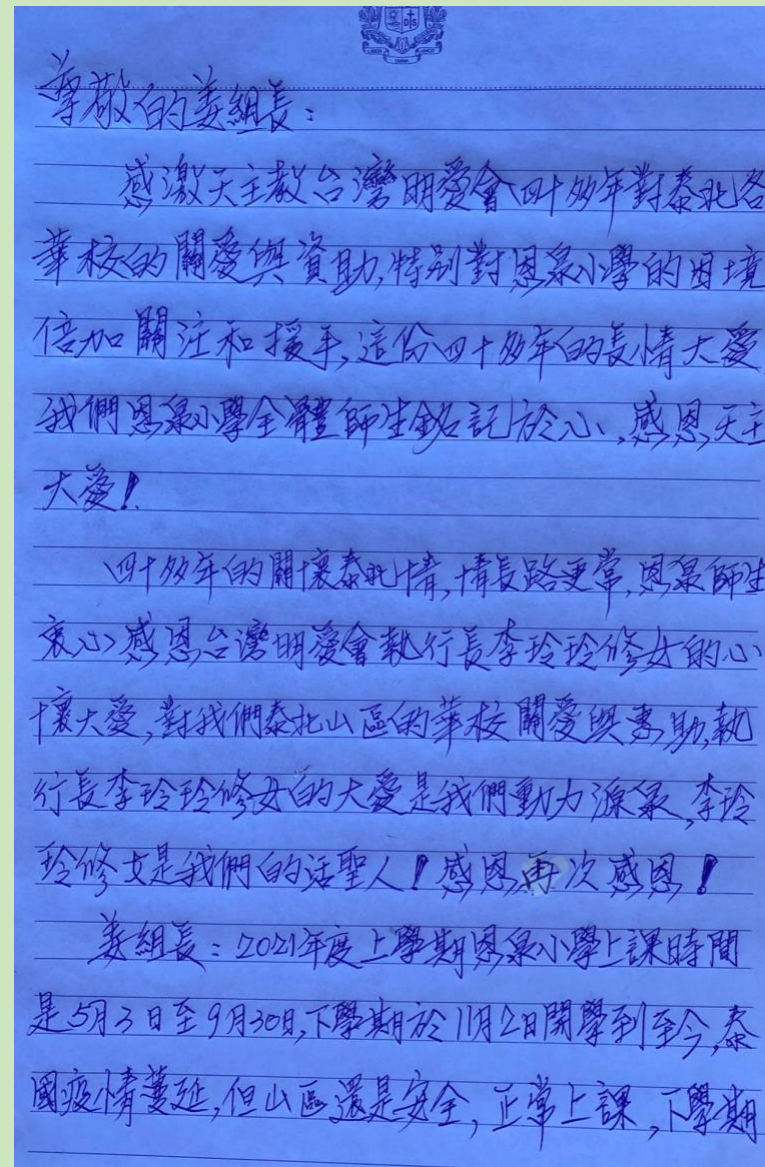 尊敬的姜組長：
感激天主教台灣明愛會四十多年對泰北各
華校的關愛與資助,特別對恩泉小學的困境
倍加關注和援手,這份四十多年的長情大愛
我們恩泉小學全體師生銘記於心,感恩天主
大愛!
四十多年的關懷泰北情,情長路更常,恩泉師生
衷心感恩台灣明愛會執行長李玲玲修女的心
懷大愛,對我們泰北山區的華校關愛與資助,執
行長李玲玲修女的大愛是我們動力源泉,李玲
玲修女是我們的活聖人!感恩再次感恩!
姜組長：2021年度上學期恩泉小學上課時間
是5月3日至9月30日,下學期於11月2日開學到至今,泰
國疫情蔓延,但山區還是安全,正常上課,下學期